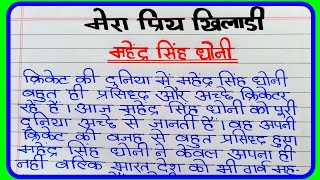 मेरा प्रिय खिलाडी
महेंद्र सिंह धोनी
क्रिकेट की दुनिया में महेंद्र सिंह धोनी
बहुत ही प्रसिध्द और अच्छे क्रिकेटर
रहे हैं। आज महेंद्र सिंह धोनी को पूरी
दुनिया अच्छे से जानती हैं। वह अपनी
क्रिकेट की वजह से बहुत प्रसिध्द हुए
महेंद्र सिंह धोनी ने केवल अपना ही
नहीं बल्कि भारत देश का भी गर्व सह-